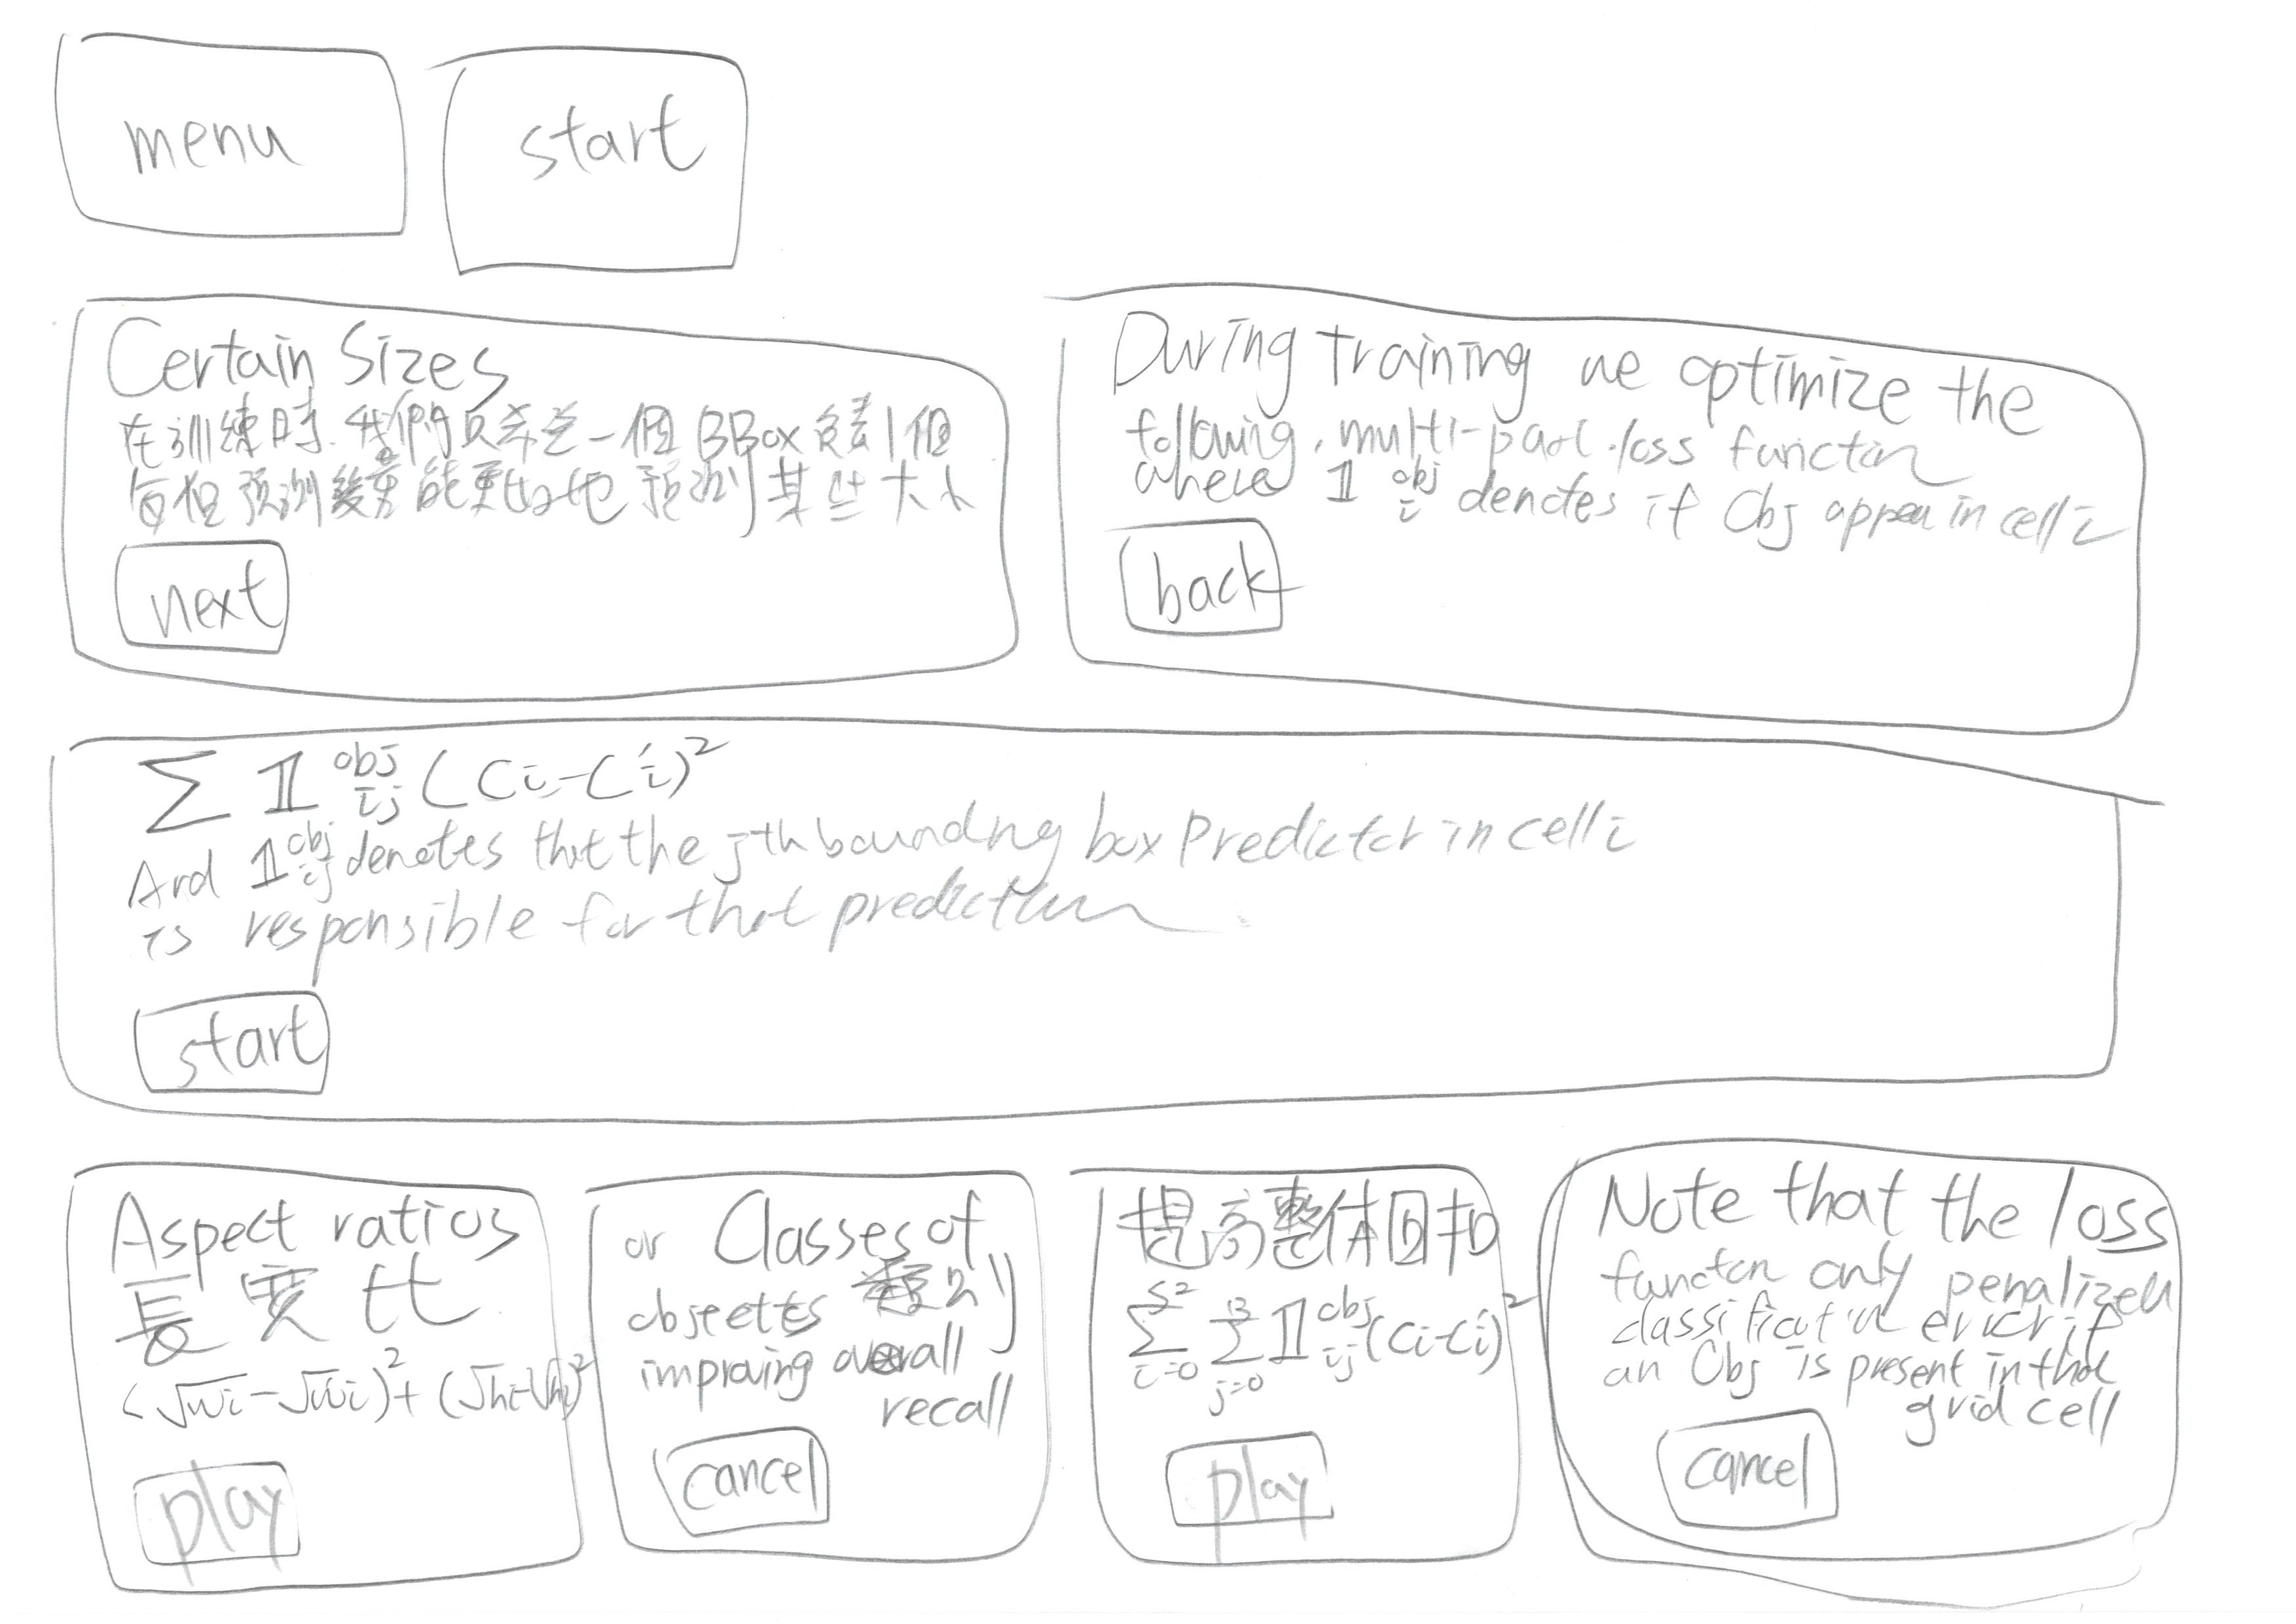 menu
start
Certain Sizes
在訓練時.我們只希望一個BBox負責1個
每個預測後果能更好地預測某些大小
next
During training we optimize the
following, multi-part loss function
where 𝟙 obj i denotes if Obj appea in cell i
back
∑ 𝟙 obj ij (Ci-C'i)²
And 𝟙 obj ij denotes that the j-th bounding box predictor in cell i
is responsible for that prediction
start
Aspect ratios
長寬比
(√wi-√wi)²+(√hi-√hi)²
play
or Classes of
objects 類別
improving overall
recall
cancel
提高整体回扣
∑ i=0 S² ∑ j=0 B 𝟙 obj ij (Ci-Ci)²
play
Note that the loss
function only penalizes
classification error if
an Obj is present in that
grid cell
cancel